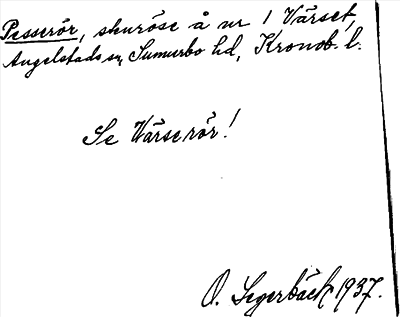 Pesserör, stenröse å nr 1 Värset,
Angelstads sn, Sunnerbo hd, Kronob. l.
Se Värserör!
O. Segerbäck 1937.